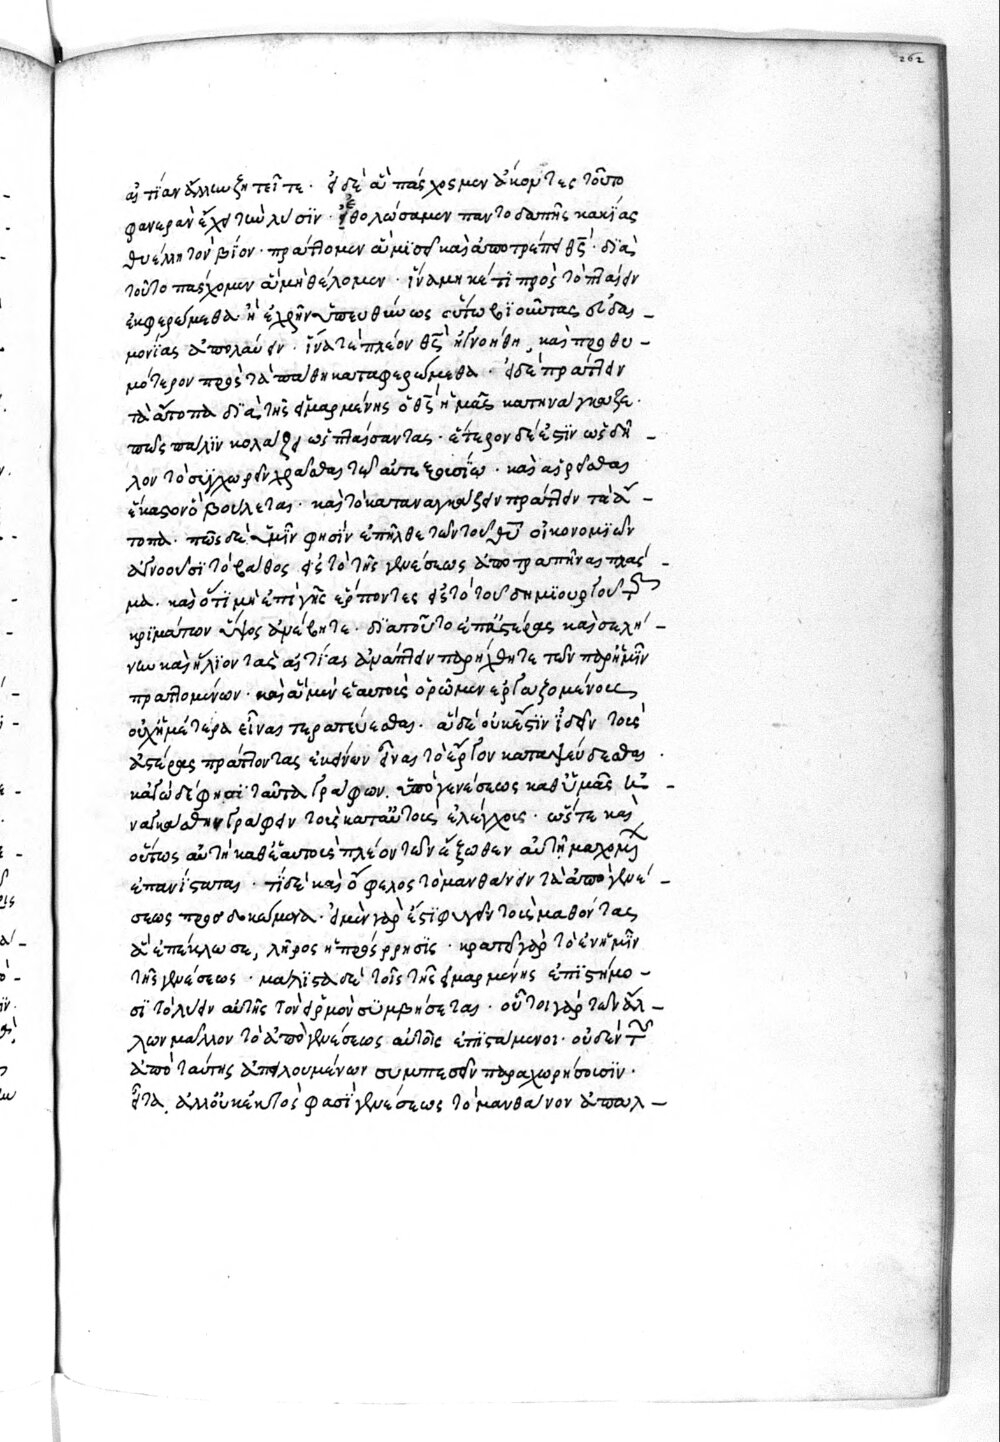 262
αἰτίαν ἄλλην ζητεῖτε· εἰ δὲ ἃ πάσχομεν ἄκοντες τοῦτο
φανερὰν ἔχει τὴν λύσιν· ἐθολώσαμεν παντοδαπῆς κακίας
θυέλλῃ τὸν βίον· πράττομεν ἃ μισεῖ καὶ ἀποτρέπει θς̅· διὰ
τοῦτο πάσχομεν ἃ μὴ θέλομεν· ἵνα μηκέτι πρὸς τὸ πταίειν
ἐκφερώμεθα ἢ ἐχρῆν ὑπευθύνως οὕτω βιοῦντας εὐδαι–
μονίας ἀπολαύειν· ἵνα τε πλέον θς̅ ἠγνοήθη, καὶ προθυ–
μότερον πρὸς τὰ πάθη καταφερώμεθα· εἰ δὲ πράττειν
τὰ ἄτοπα διὰ τῆς εἱμαρμένης ὁ θς̅ ἡμᾶς κατηνάγκαζε·
πῶς πάλιν κολάζει ὡς πταίσαντας· ἕτερον δέ ἐστιν ὡς δῆ–
λον τὸ συγχωρεῖν χρᾶσθαι τῷ αὐτεξουσίῳ· καὶ αἱρεῖσθαι
ἕκαστον ὃ βούλεται· καὶ τὸ καταναγκάζειν πράττειν τὰ ἄ–
τοπα· πῶς δὲ ὑμῖν φησὶν ἐπῆλθε τῶν τοῦ θυ̅ οἰκονομιῶν
ἀγνοοῦσι τὸ βάθος εἰς τὸ τῆς γενέσεως ἀποτραπῆναι πλάσ–
μα· καὶ ὅτι μὴ ἐπὶ γῆς ἕρποντες εἰς τὸ τοῦ δημιουργοῦ τῶν
κριμάτων ὕψος ἀνέβητε· διὰ τοῦτο ἐπὰστέρας καὶ σελή–
νην καὶ ἥλιον τὰς αἰτίας ἀνάπτειν παρήχθητε τῶν παρ' ἡμῖν
πραττομένων· καὶ ἃ μὲν ἑαυτοὺς ὁρῶμεν ἐργαζομένους
οὐχ ἡμέτερα εἶναι τερατεύεσθαι· ἃ δὲ οὐκ ἔστιν ἰδεῖν τοὺς
ἀστέρας πράττοντας ἐκείνων εἶναι τὸ ἔργον καταψεύδεσθαι·
κἀγὼ δέ φησι ταῦτα γράφων· ὑπὸ γενέσεως καθ' ὑμᾶς
ναγκάσθην γράφειν τοὺς κατ' αὐτοὺς ἐλέγχους· ὥστε καὶ
οὕτως αὐτὴ καθ' ἑαυτοὺς πλέον τῶν ἔξωθεν αὐτῇ μαχομένων
ἐπανίσταται· τί δὲ καὶ ὄφελος τὸ μανθάνειν τὰ ἀπὸ γενέ–
σεως προσδοκώμενα· εἰ μὲν γὰρ ἔστι φυγεῖν τοὺς μαθόντας
ἃ ἐπέκλωσε, λῆρος ἡ πρόρρησις· κρατεῖ γὰρ τὸ ἐν ἡμῖν
τῆς γενέσεως· μάλιστα δὲ τοῖς τῆς εἱμαρμένης ἐπιστήμο–
σι τὸ λύειν αὐτῆς τὸν εἱρμὸν συμβήσεται· οὗτοι γὰρ τῶν ἄλ–
λων μᾶλλον τὸ ἀπὸ γενέσεως αὐτοῖς ἐπιστάμενοι· οὐδὲν τῶν
ἀπὸ ταύτης ἀπειλουμένων συμπεσεῖν παραχωρήσουσιν·
εἶτα, ἀλλ' οὐκ ἐκτὸς φασὶ γενέσεως τὸ μανθάνον ἀπαλ–